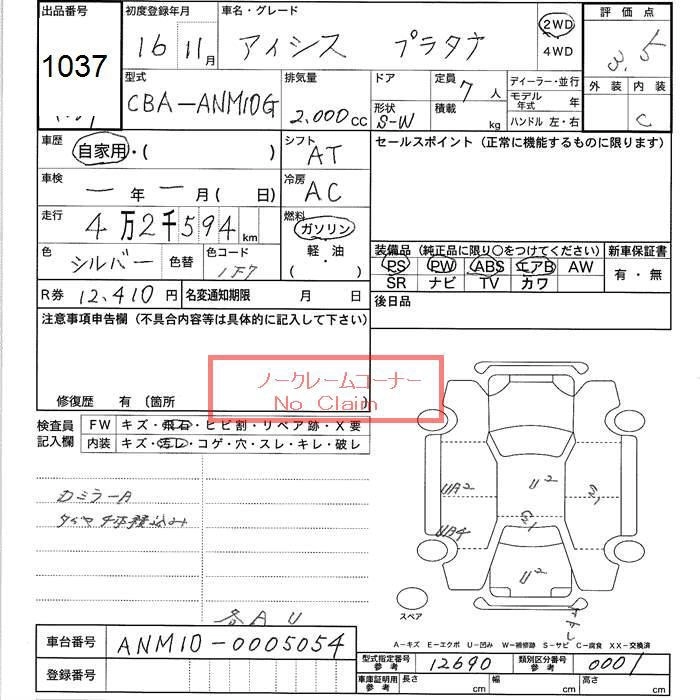 出品番号 初度登録年月 車名・グレード 評価点
1037 16 11月 アイシス プラタナ 2WD 4WD 3.5
型式 排気量 ドア 定員 7人 ディーラー・並行 外装 内装
CBA-ANM10G 2,000cc 形状 S-W 積載 kg モデル年式 年 ハンドル 左・右 C
車歴 自家用・( ) シフト AT セールスポイント (正常に機能するものに限ります)
車検 ー年ー月( 日) 冷房 AC
走行 4万2千594km 燃料 ガソリン
軽・油
( ・ )
色 シルバー 色替 色コード 1F7
装備品 (純正品に限り○をつけてください) 新車保証書
PS PW ABS エアB AW 有・無
SR ナビ TV カワ
R券 12,410円 名変通知期限 月 日 後日品
注意事項申告欄 (不具合内容等は具体的に記入して下さい)
ノークレームコーナー
No Claim
修復歴 有 〔箇所
検査員記入欄 FW キズ・飛石・ヒビ割・リペア跡・X要
内装 キズ・汚レ・コゲ・穴・スレ・キレ・破レ
カミラーA
UA2 U2
UA4
U2
スペア
各AU
車台番号 ANM10-0005054
A-キズ E-エクボ U-凹み W-補修跡 S-サビ C-腐食 XX-交換済
登録番号 型式指定番号 参考 12690 類別区分番号 参考 0001
車庫証明用 参考 長さ cm 幅 cm 高さ cm